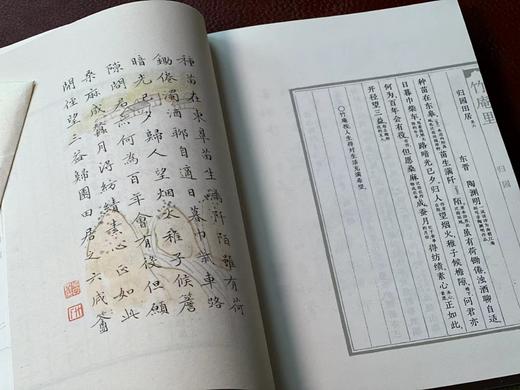 竹庵里
归园
归园田居 其六
东晋 陶渊明
种苗在东皋,苗生满阡陌。虽有荷锄倦,浊酒聊自适。
日暮巾柴车,路暗光已夕。归人望烟火,稚子候檐隙。问君亦
何为,百年会有役。但愿桑麻成,蚕月得纺绩。素心正如此,
开径望三益。
種苗在東皋苗生滿阡陌雖有荷
鋤倦濁酒聊自適日暮巾柴車路
暗光已夕歸人望煙火稚子候簷
隙問君亦何為百年會有役但願
桑麻成蠶月得紡績素心正如此
開徑望三益歸園田居之六